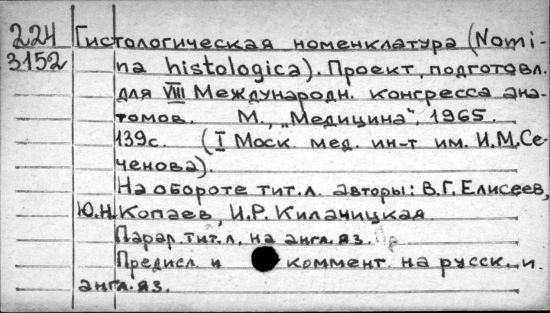 224 Гистологическая номенклатура (Nomi-
3152 na histologica). Проект, подготовл.
для VIII Международн. конгресса ана-
томов. М., „Медицина", 1965.
139с. (I Моск. мед. ин-т им. И.М.Се-
ченова).
На обороте тит.л. авторы: В.Г.Елисеев,
Ю.Н.Копаев, И.Р.Килачицкая
Парал. тит.л. на англ.яз.
Предисл. и коммент. на русск. и
англ.яз.